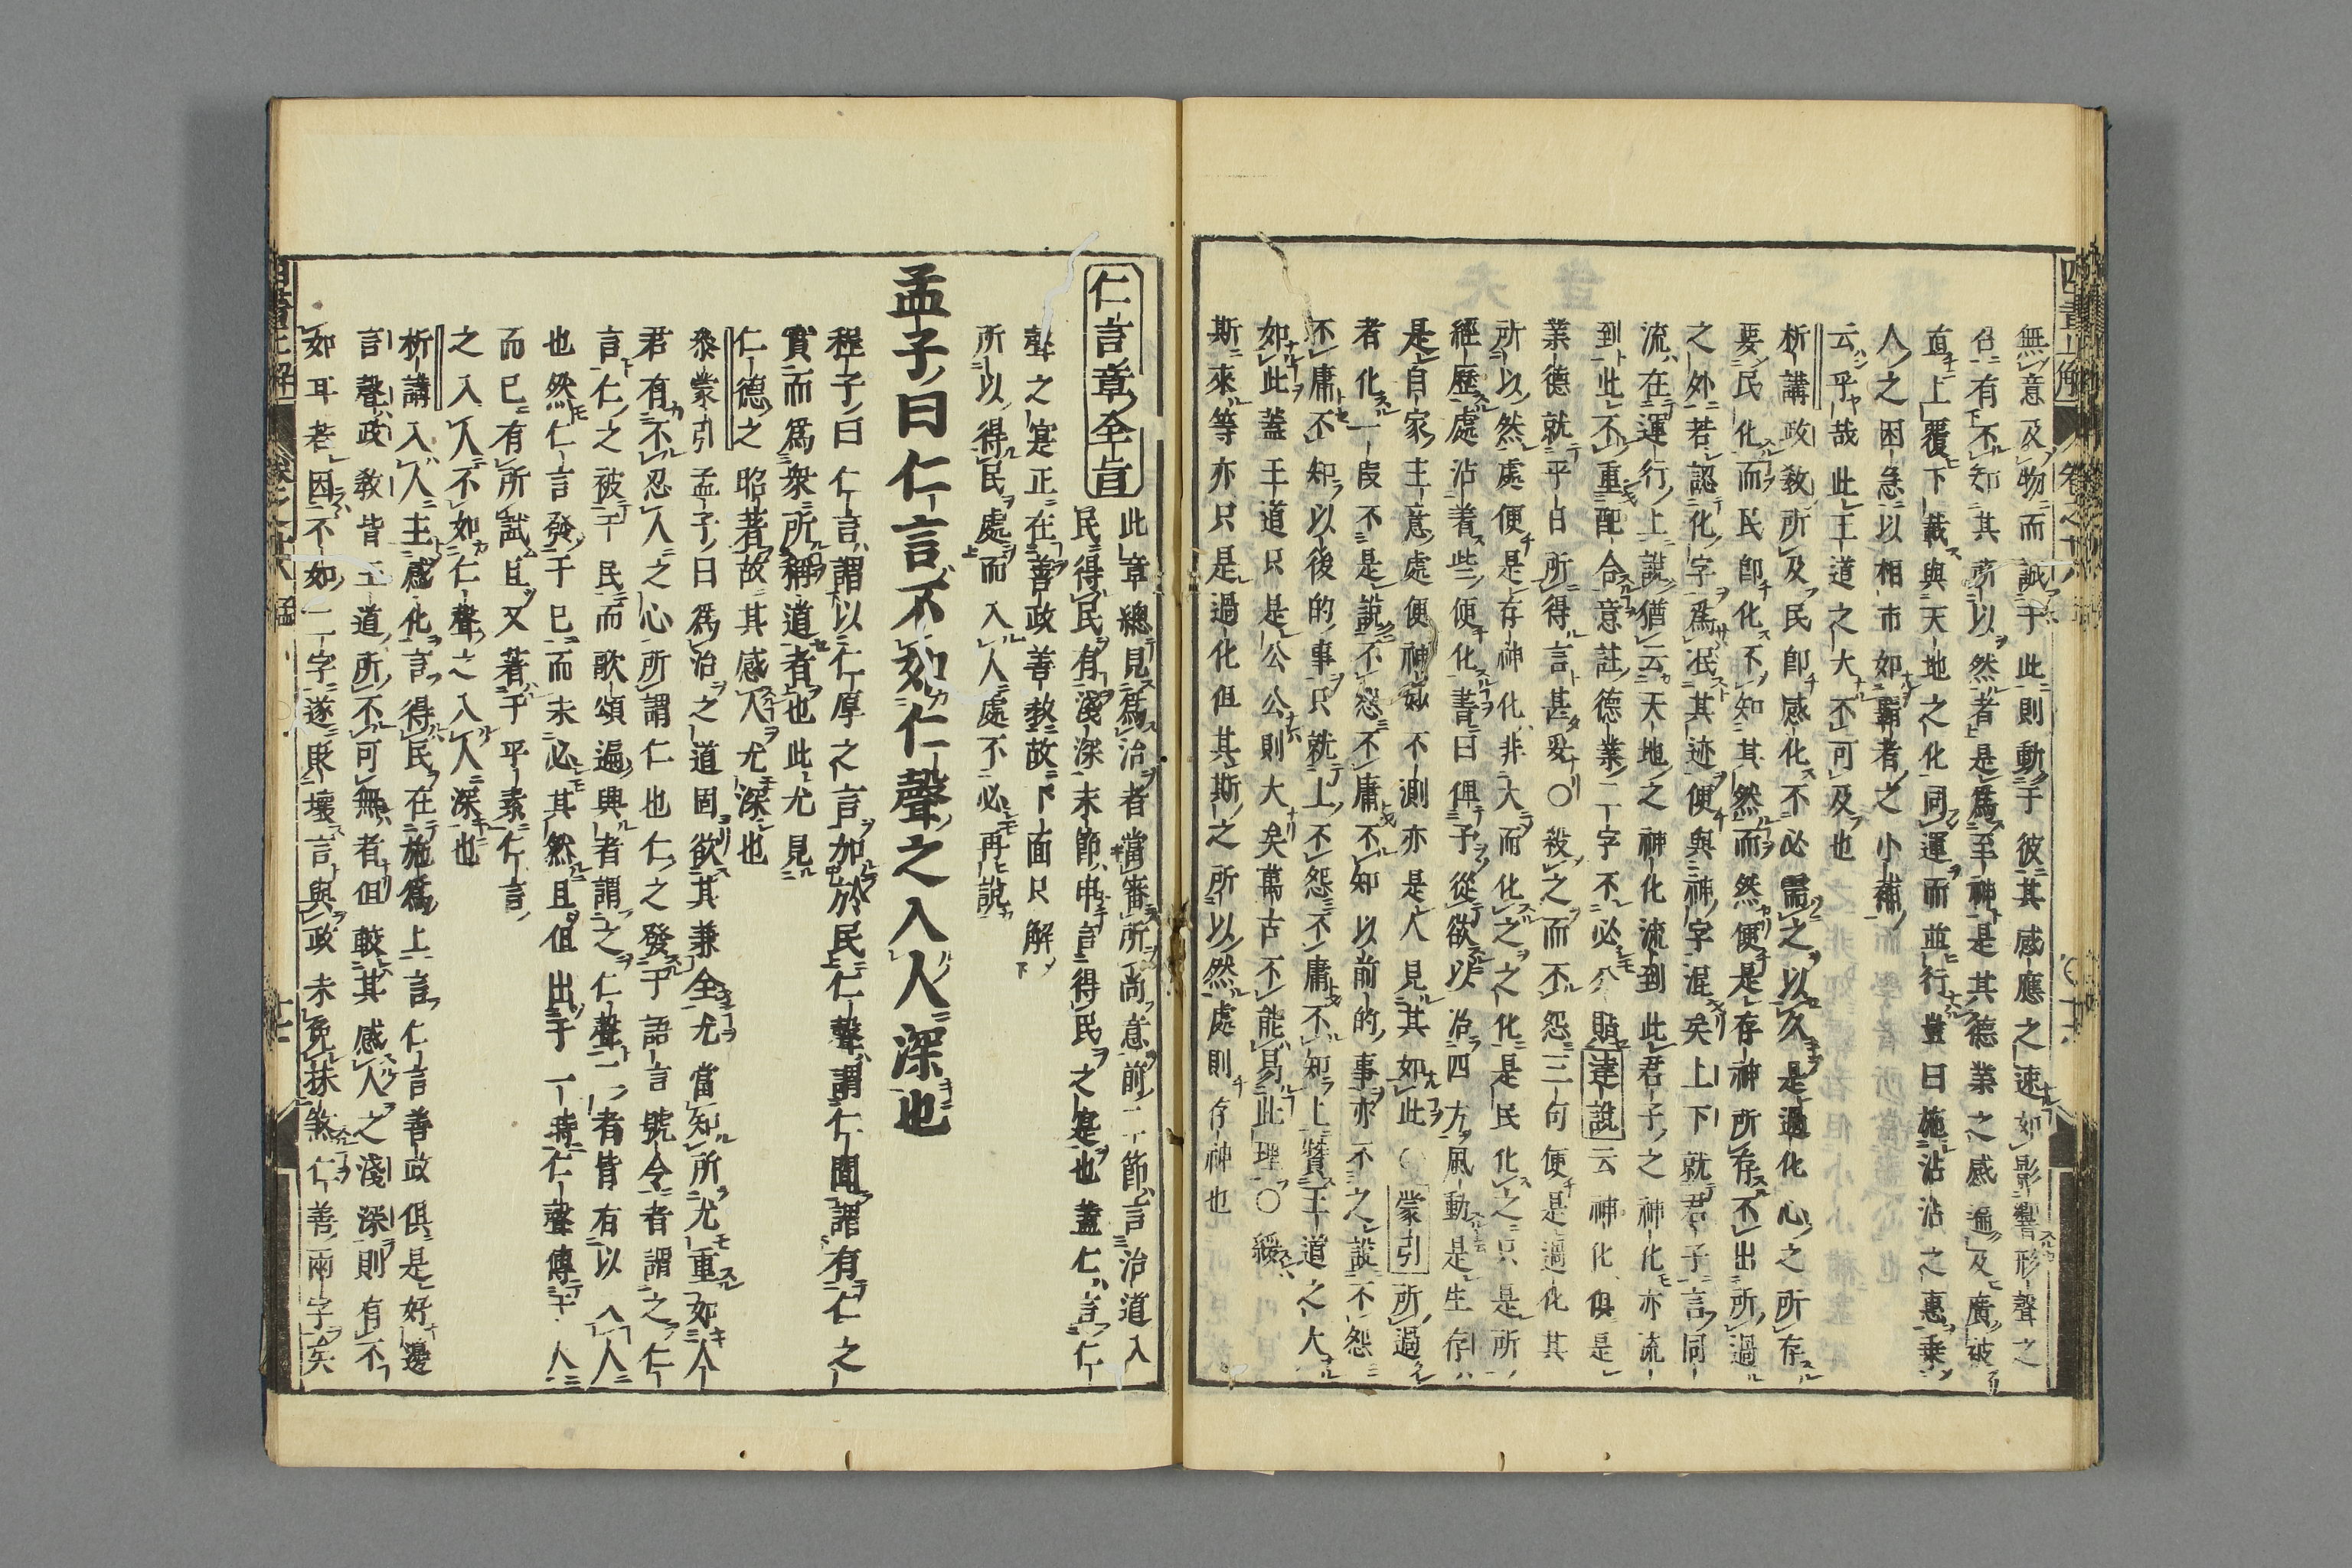 無意及物而誠于此則動于彼其感應之速如影響形聲之
召有不知其所以然者是爲至神是其德業之感遍及廣被
直上覆下載與天地之化同運而並行豈曰施沾沾之惠乗
人之困急以相市如霸者之小補
云乎哉此王道之大不可及也
析講政教所及民卽感化不必需之以久是過化心之所存
要民化而民卽化不知其然而然便是存神所存不出所過
之外若認化字爲泯其迹便與神字混矣上下就君子言同
流在運行上說猶云天地之神化流到此君子之神化亦流
到此不重配合意註德業二字不必分貼達說云神化俱是
業德就平日所得言甚妥○殺之而不怨三句便是過化其
所以然處便是存神化非大而化之之化是民化之只是所
經歷處沾着些便化書曰俾予從欲以治四方風動是生存
是自家主意處便神妙不測亦是人見其如此○蒙引所過
者化一段不是說不怨不庸不知以前的事亦不之設不怨
不庸不知以後的事只就上不怨不庸不知上贊王道之大
如此蓋王道只是公公則大矣萬古不能易此理○綏
斯來等亦只是過化但其斯之所以然處則存神也
仁言章全旨
此章總見爲治者當審所尚意前二節言治道入
民得民有淺深末節申言得民之寔也蓋仁言仁
聲之寔正在善政善教故下面只解
所以得民處而入人處不必再說
孟子曰仁言不如仁聲之入人深也
程子曰仁言謂以仁厚之言加於民仁聲謂仁聞謂有仁之
實而爲衆所稱道者也此尤見
仁德之昭著故其感人尤深也
叅蒙引孟子曰爲治之道固欲其兼全尤當知所尤重如人
君有不忍人之心所謂仁也仁之發于語言號令者謂之仁
言仁之被于民而歌頌遍興者謂之仁聲二者皆有以入人
也然仁言發于已而未必其然且但出于一時仁聲傳于人
而已有所試且又著于平素仁言
之入人不如仁聲之入人深也
析講入人主感化言得民在施爲上言仁言善政俱是好邊
言聲政教皆王道所不可無者但較其感人之淺深則有不
如耳若因不如二字遂貶壞言與政未免抹煞仁善兩字矣